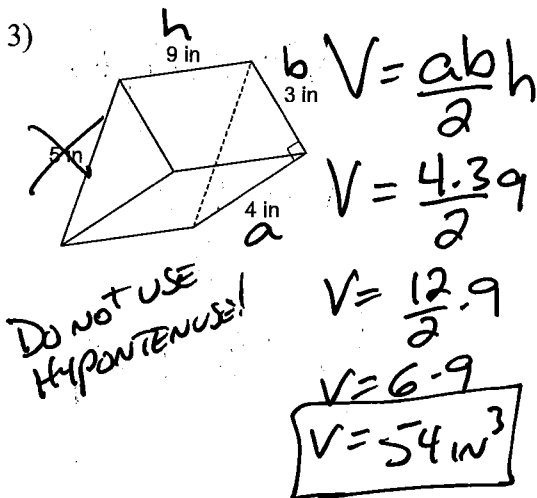 3)
h
9 in
b
3 in
5 in
4 in
a
DO NOT USE
HYPONTENUSE!
V = ab/2 h
V = 4·3/2 9
V = 12/2 · 9
V = 6 · 9
V = 54 IN³